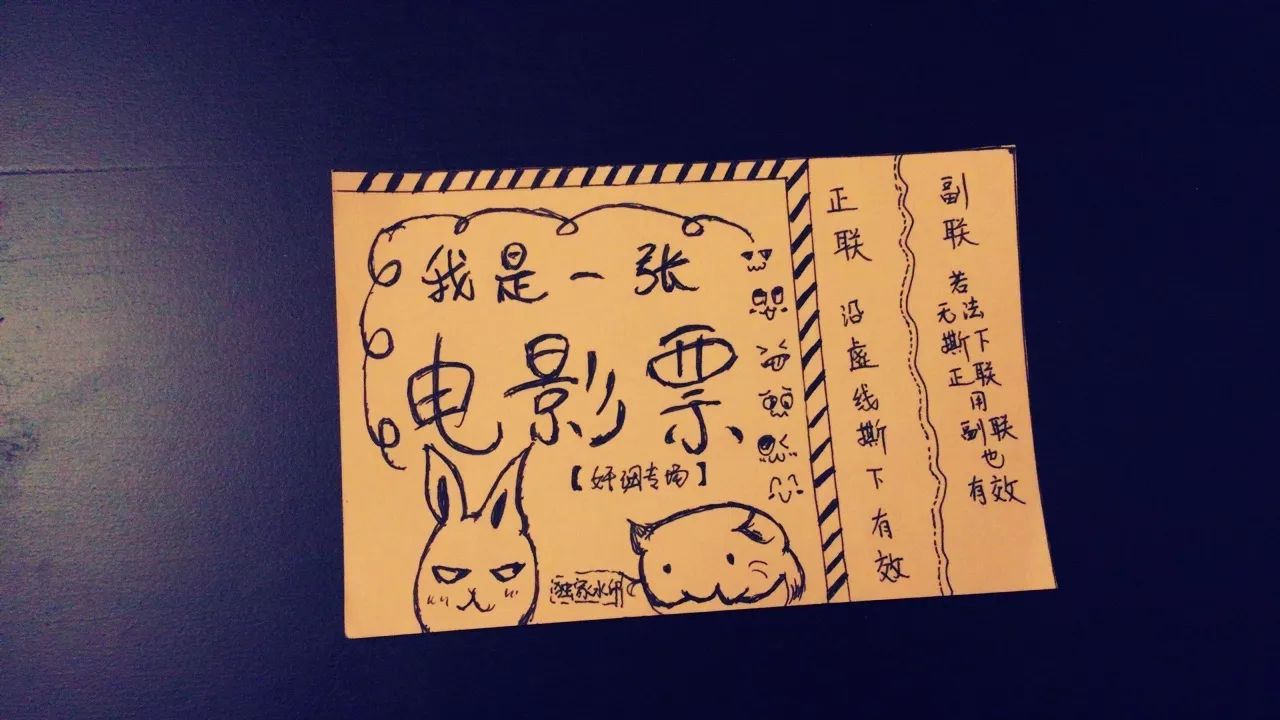 我是一张
电影票
【好姻专场】
独家水印
正联 沿虚线撕下有效
副联
若
无法
撕下
正联
用
副联
也
有效